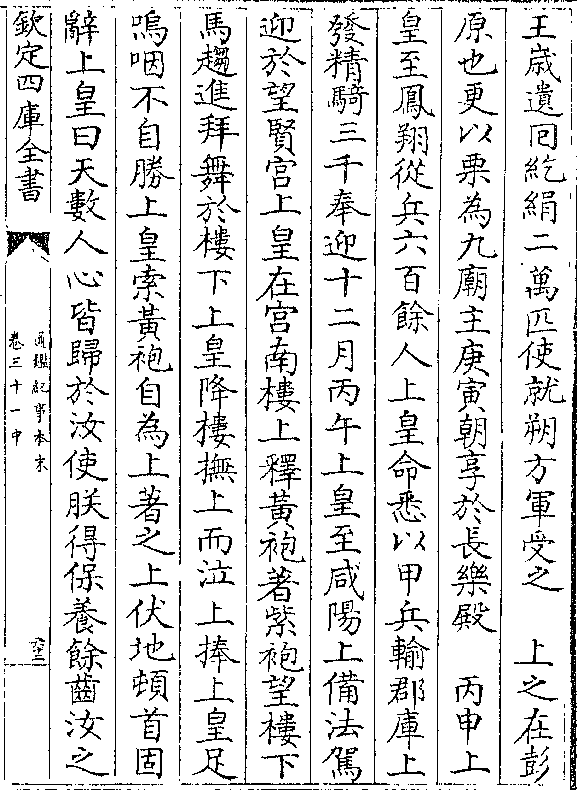 王歲遺囘紇絹二萬匹使就朔方軍受之　上之在彭
原也更以栗為九廟主庚寅朝享於長樂殿　丙申上
皇至鳳翔從兵六百餘人上皇命悉以甲兵輸郡庫上
發精騎三千奉迎十二月丙午上皇至咸陽上備法駕
迎於望賢宫上皇在宫南樓上釋黄袍著紫袍望樓下
馬趨進拜舞於樓下上皇降樓撫上而泣上捧上皇足
嗚咽不自勝上皇索黄袍自為上著之上伏地頓首固
辭上皇曰天數人心皆歸於汝使朕得保養餘齒汝之
欽定四庫全書
通鑑紀事本末
卷三十一中